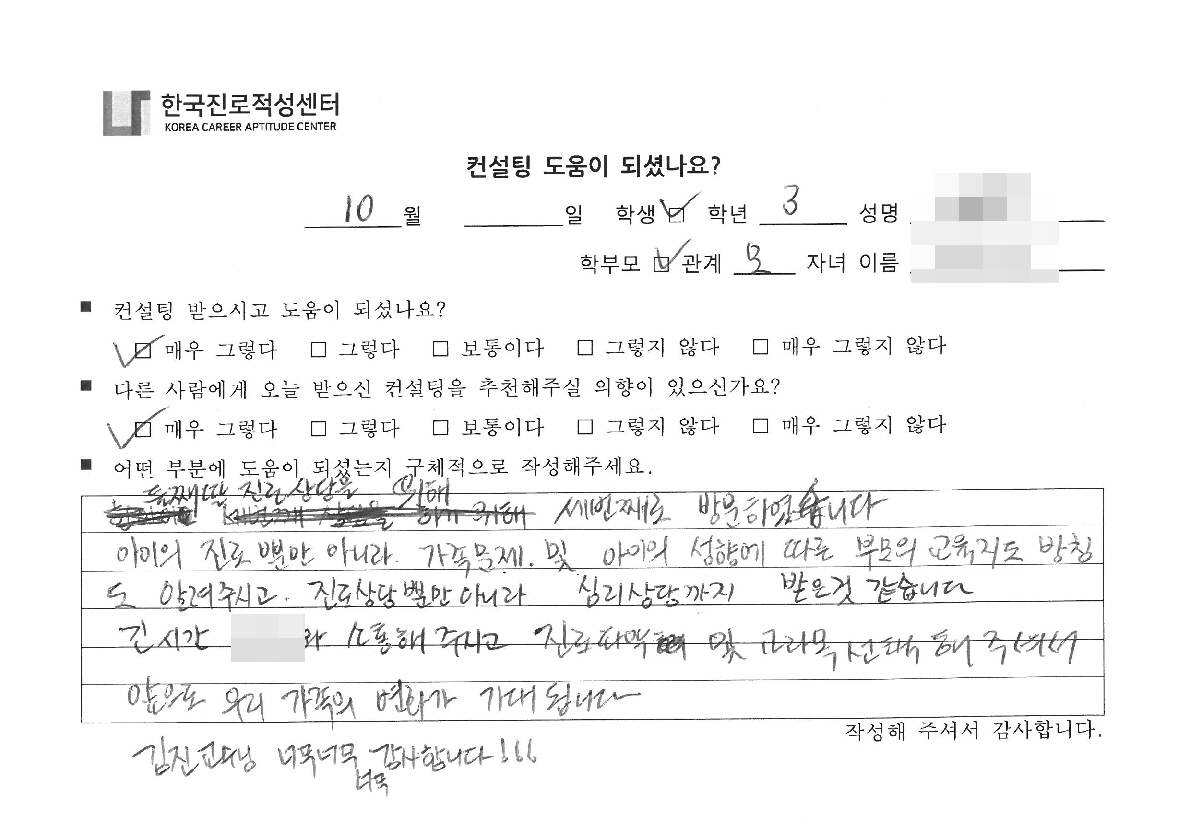 한국진로적성센터
KOREA CAREER APTITUDE CENTER
컨설팅 도움이 되셨나요?
10 월 일 학생 ☑ 학년 3 성명
학부모 ☑ 관계 모 자녀 이름
■ 컨설팅 받으시고 도움이 되섰나요?
☑ 매우 그렇다 □ 그렇다 □ 보통이다 □ 그렇지 않다 □ 매우 그렇지 않다
■ 다른 사람에게 오늘 받으신 컨설팅을 추천해주실 의향이 있으신가요?
☑ 매우 그렇다 □ 그렇다 □ 보통이다 □ 그렇지 않다 □ 매우 그렇지 않다
■ 어떤 부분에 도움이 되섰는지 구체적으로 작성해주세요.
둘째딸 진로상담을 위해
세번째로 방문하였습니다
아이의 진로 뿐만 아니라. 가족문제. 및 아이의 성향에 따른 부모의 교육지도 방침
도 알려주시고. 진로상담 뿐만 아니라 심리상담까지 받은것 같습니다
긴 시간 와 소통해 주시고 진로파악 및 과목 선택 해 주셔서
앞으로 우리 가족의 변화가 기대 됩니다
작성해 주셔서 감사합니다.
김진교대님 너무너무 감사합니다!!!
너무